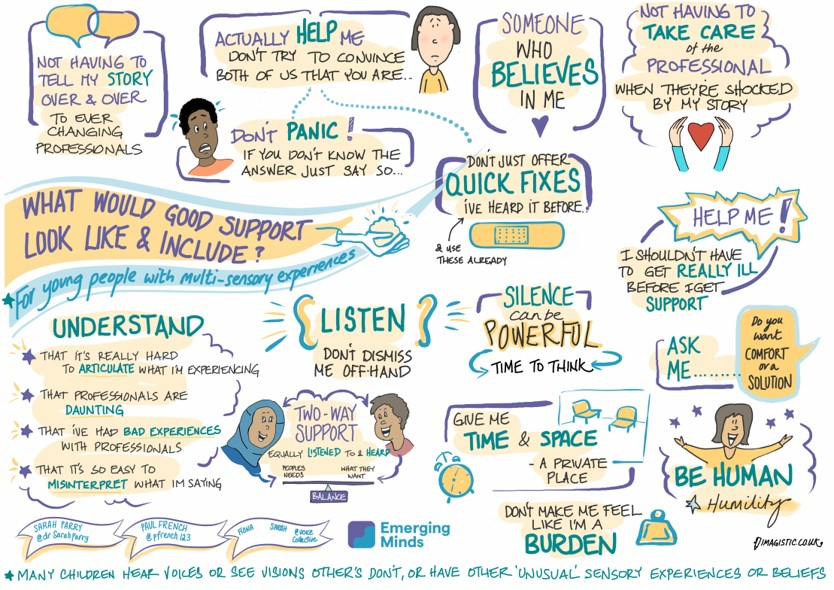 NOT HAVING TO
TELL MY STORY
OVER & OVER
TO EVER
CHANGING
PROFESSIONALS
ACTUALLY HELP ME
DON'T TRY TO CONVINCE
BOTH OF US THAT YOU ARE...
DON'T PANIC!
IF YOU DON'T KNOW THE
ANSWER JUST SAY SO...
SOMEONE
WHO
BELIEVES
IN ME
NOT HAVING TO
TAKE CARE
of the
PROFESSIONAL
WHEN THEY'RE SHOCKED
BY MY STORY
DON'T JUST OFFER
QUICK FIXES
I'VE HEARD IT BEFORE..
& USE
THESE ALREADY
WHAT WOULD GOOD SUPPORT
LOOK LIKE & INCLUDE?
★For young people with multi-sensory experiences
HELP ME!
I SHOULDN'T HAVE
TO GET REALLY ILL
BEFORE I GET
SUPPORT
UNDERSTAND
★ THAT IT'S REALLY HARD
TO ARTICULATE WHAT I'M EXPERIENCING
★ THAT PROFESSIONALS ARE
DAUNTING
★ THAT I'VE HAD BAD EXPERIENCES
WITH PROFESSIONALS
★ THAT IT'S SO EASY TO
MISINTERPRET WHAT I'M SAYING
LISTEN
DON'T DISMISS
ME OFF-HAND
SILENCE
can be
POWERFUL
TIME TO THINK
ASK
ME.........
Do you
want
COMFORT
or a
SOLUTION
TWO-WAY
SUPPORT
EQUALLY LISTENED TO & HEARD
PEOPLES
NEEDS
WHAT THEY
WANT
BALANCE
GIVE ME
TIME & SPACE
- A PRIVATE
PLACE
BE HUMAN
☆ Humility
DON'T MAKE ME FEEL
LIKE I'M A
BURDEN
SARAH PARRY
@drSarahParry
PAUL FRENCH
@pfrench123
FIONA
@voice
collective
Emerging
Minds
IMAGISTIC.CO.UK
★ MANY CHILDREN HEAR VOICES OR SEE VISIONS OTHER'S DON'T, OR HAVE OTHER 'UNUSUAL' SENSORY EXPERIENCES OR BELIEFS